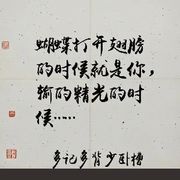 蝴蝶打开翅膀
的时候就是你,
输的精光的时
候……
多记多背少卧槽